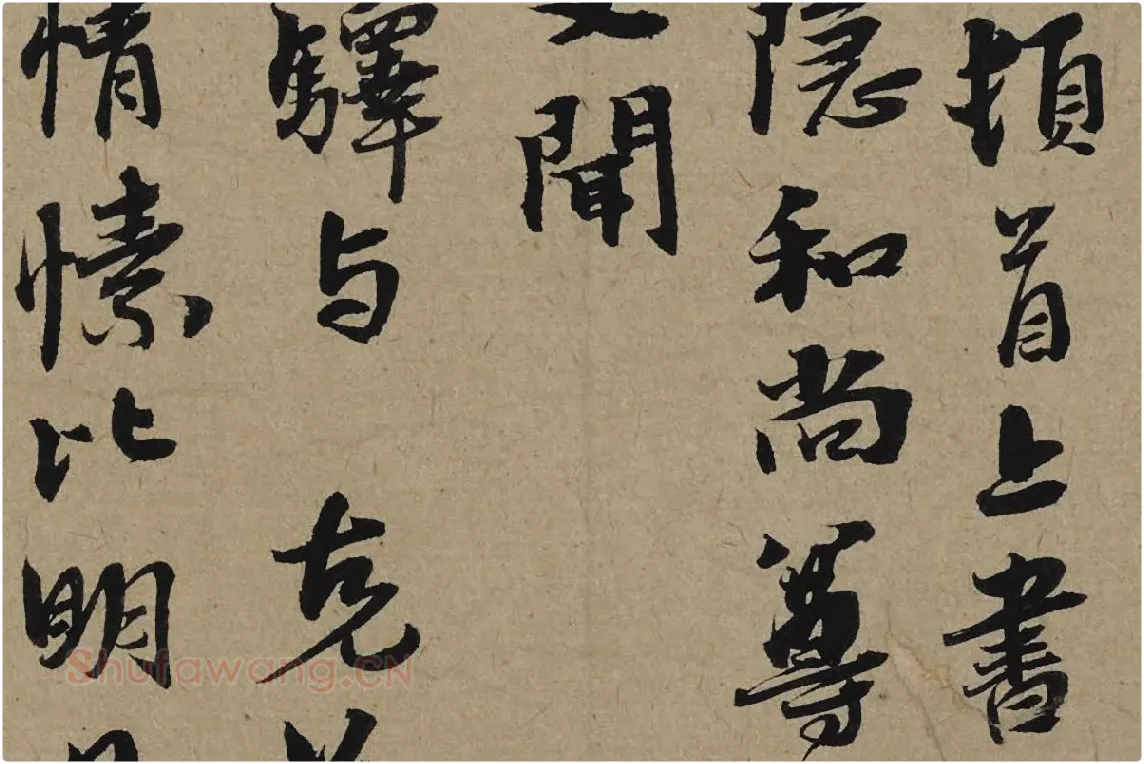 頓首上書
隱和尚尊
聞
驛与克
情愫比明
Shufawang.CN